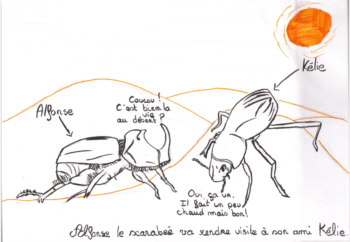 Kélie
Coucou !
C'est bien la
vie
au désert ?
Alfonse
Oui, ça va.
Il fait un peu
chaud mais bon!
Alfonse le scarabée va rendre visite à son ami Kélie.